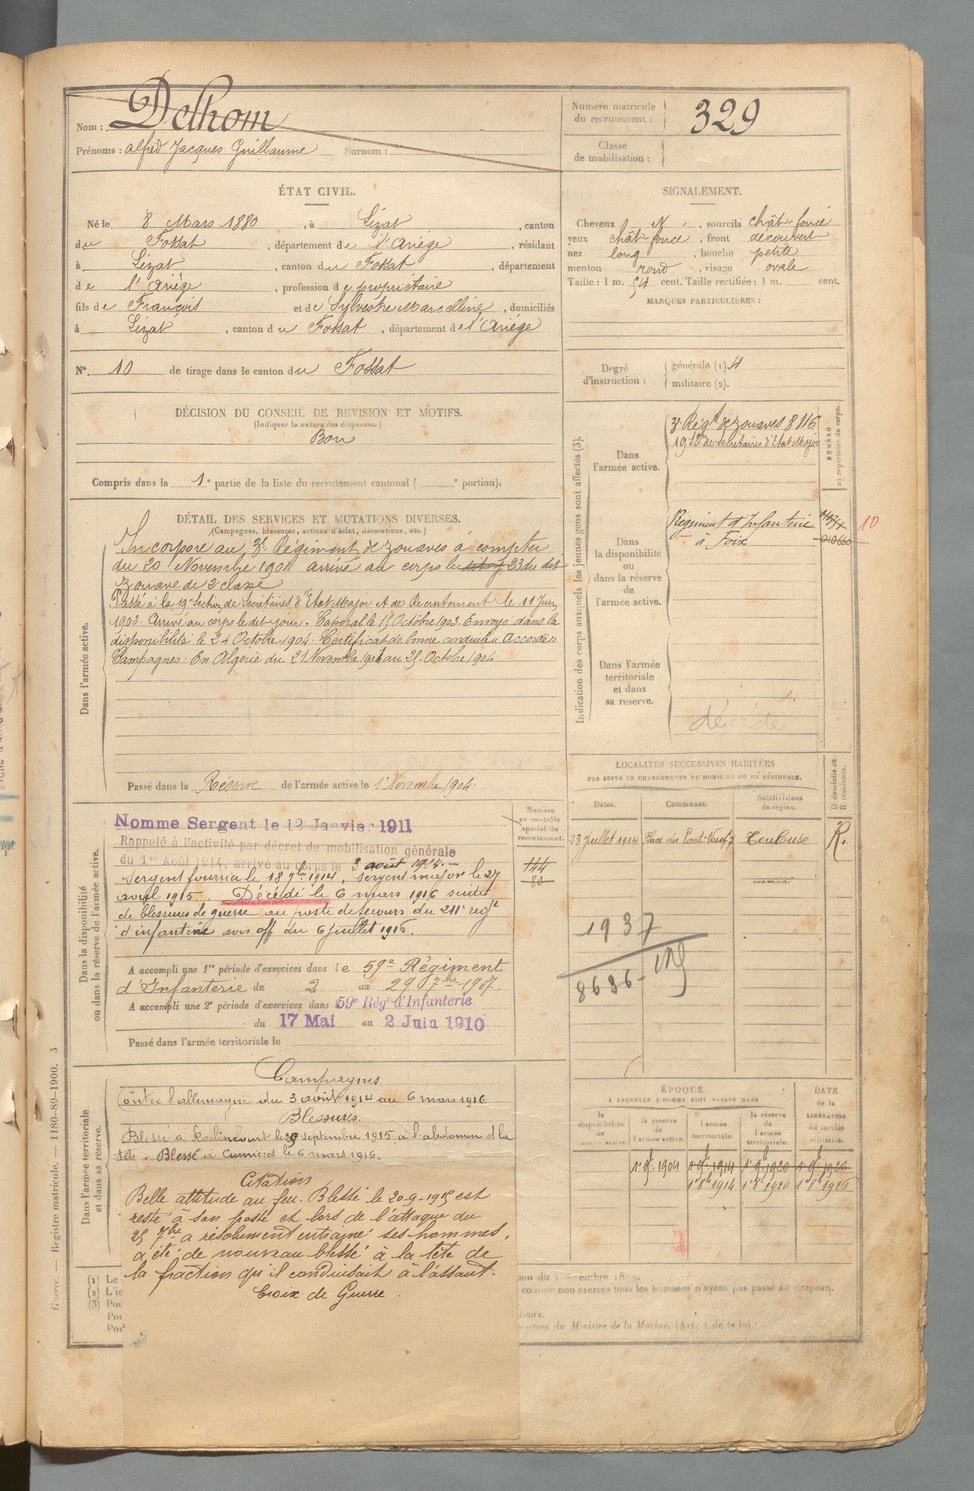 Nom : Delhom
Prénoms : Alfred Jacques Guillaume Surnom :
Numéro matricule du recrutement : 329
Classe de mobilisation :
ÉTAT CIVIL.
Né le 8 Mars 1880, à Lézat, canton
du Fossat, département de l'Ariège, résidant
à Lézat, canton du Fossat, département
de l'Ariège, profession de propriétaire
fils de François et de Sylvestre Marcelline, domiciliés
à Lézat, canton du Fossat, département de l'Ariège
N° 10 de tirage dans le canton du Fossat
SIGNALEMENT.
Cheveux N, sourcils chât-foncé
yeux chât-foncé, front découvert
nez long, bouche petite
menton rond, visage ovale
Taille : 1 m. 54 cent. Taille rectifiée : 1 m. cent.
MARQUES PARTICULIÈRES :
Degré d'instruction : générale (1) 4
militaire (2).
DÉCISION DU CONSEIL DE REVISION ET MOTIFS.
(Indiquer la nature des dispenses.)
Bon
Compris dans la 1e partie de la liste du recrutement cantonal ( e portion).
DÉTAIL DES SERVICES ET MUTATIONS DIVERSES.
(Campagnes, blessures, actions d'éclat, décorations, etc.)
Dans l'armée active.
Incorporé au 3e Régiment de zouaves à compter
du 20 Novembre 1901 arrivé au corps le 23 du dit
zouave de 2e classe
Passé à la 19e Section de Secrétaires d'Etat Major et de Recrutement le 11 Juin
1903. Arrivé au corps le dit jour. Caporal le 15 Octobre 1903. Envoyé dans la
disponibilité le 24 Octobre 1904. Certificat de bonne conduite Accordé
Campagnes : En Algérie du 21 Novembre 1901 au 25 Octobre 1904.
Passé dans la Réserve de l'armée active le 1er Novembre 1904.
Indication des corps auxquels les jeunes gens sont affectés (3).
NUMÉRO au répertoire du corps.
Dans l'armée active.
3e Régt de zouaves 8116
19e Son de secrétaires d'Etat Major
Dans la disponibilité ou dans la réserve de l'armée active.
Régiment d'Infanterie
à Foix
10
Dans l'armée territoriale et dans sa réserve.
décédé
LOCALITÉS SUCCESSIVES HABITÉES
PAR SUITE DE CHANGEMENTS DE DOMICILE OU DE RÉSIDENCE.
Dates. Communes. Subdivisions de région. D domicile ou R résidence.
23 Juillet 1914 Place du Pont-Neuf 7 Toulouse R.
1937
8636
Dans la disponibilité ou dans la réserve de l'armée active.
Numéro au contrôle spécial du recrutement.
144
83
Nommé Sergent le 12 Janvier 1911
Rappelé à l'activité par décret de mobilisation générale
du 1er Août 1914, arrivé au corps le 3 août 1914.
Sergent fourrier le 18 7bre 1914, Sergent major le 27
avril 1915. Décédé le 6 mars 1916 suites
de blessures de guerre au poste de secours du 211e régt
d'infanterie avis off du 6 juillet 1916.
A accompli une 1re période d'exercices dans le 59e Régiment
d'Infanterie du 2 au 29 07bre 1907.
A accompli une 2e période d'exercices dans 59e Régt d'Infanterie
du 17 Mai au 2 Juin 1910
Passé dans l'armée territoriale le
Dans l'armée territoriale et dans sa réserve.
Campagnes
Contre l'allemagne du 3 août 1914 au 6 mars 1916
Blessures.
Blessé à Roclincourt le septembre 1915 à l'abdomen et la
tête. Blessé à Cumières le 6 mars 1916.
Citation
Belle attitude au feu. Blessé le 20-9-1915 est
resté à son poste et lors de l'attaque du
25 7bre a résolument entrainé ses hommes,
a été de nouveau blessé à la tête de
la fraction qu'il conduisait à l'assaut.
Croix de Guerre.
ÉPOQUE
À LAQUELLE L'HOMME DOIT PASSER DANS
la disponibilité de l'armée active. la réserve de l'armée active. l'armée territoriale. la réserve de l'armée territoriale. DATE de la LIBÉRATION du service militaire.
1er 9bre 1904 1er 9bre 1914 1er 9bre 1920 1er 9bre 1926
1er 8bre 1914 1er 8bre 1920 1er 8bre 1926
(1) Le
(2) L'in
(3) Pou
Pou
Pou
comme non exercés tous les hommes n'ayant pas passé au drapeau.
du Ministre de la Marine. (Art. de la loi.)
Guerre. — Registre matricule. — 1180-89-1900. 3